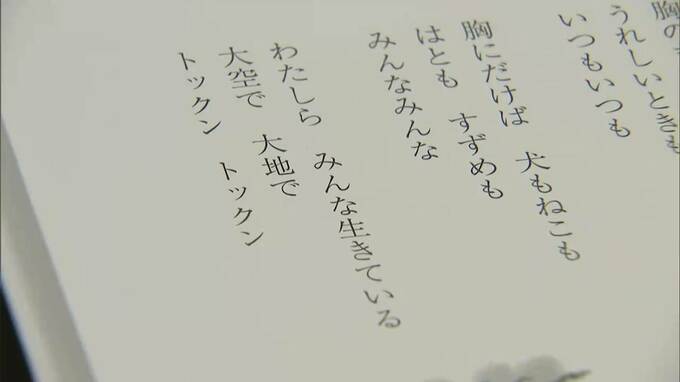 胸の
うれしいときも
いつもいつも
胸にだけば　犬もねこも
はとも　すずめも
みんなみんな
わたしら　みんな生きている
大空で　大地で
トックン　トックン